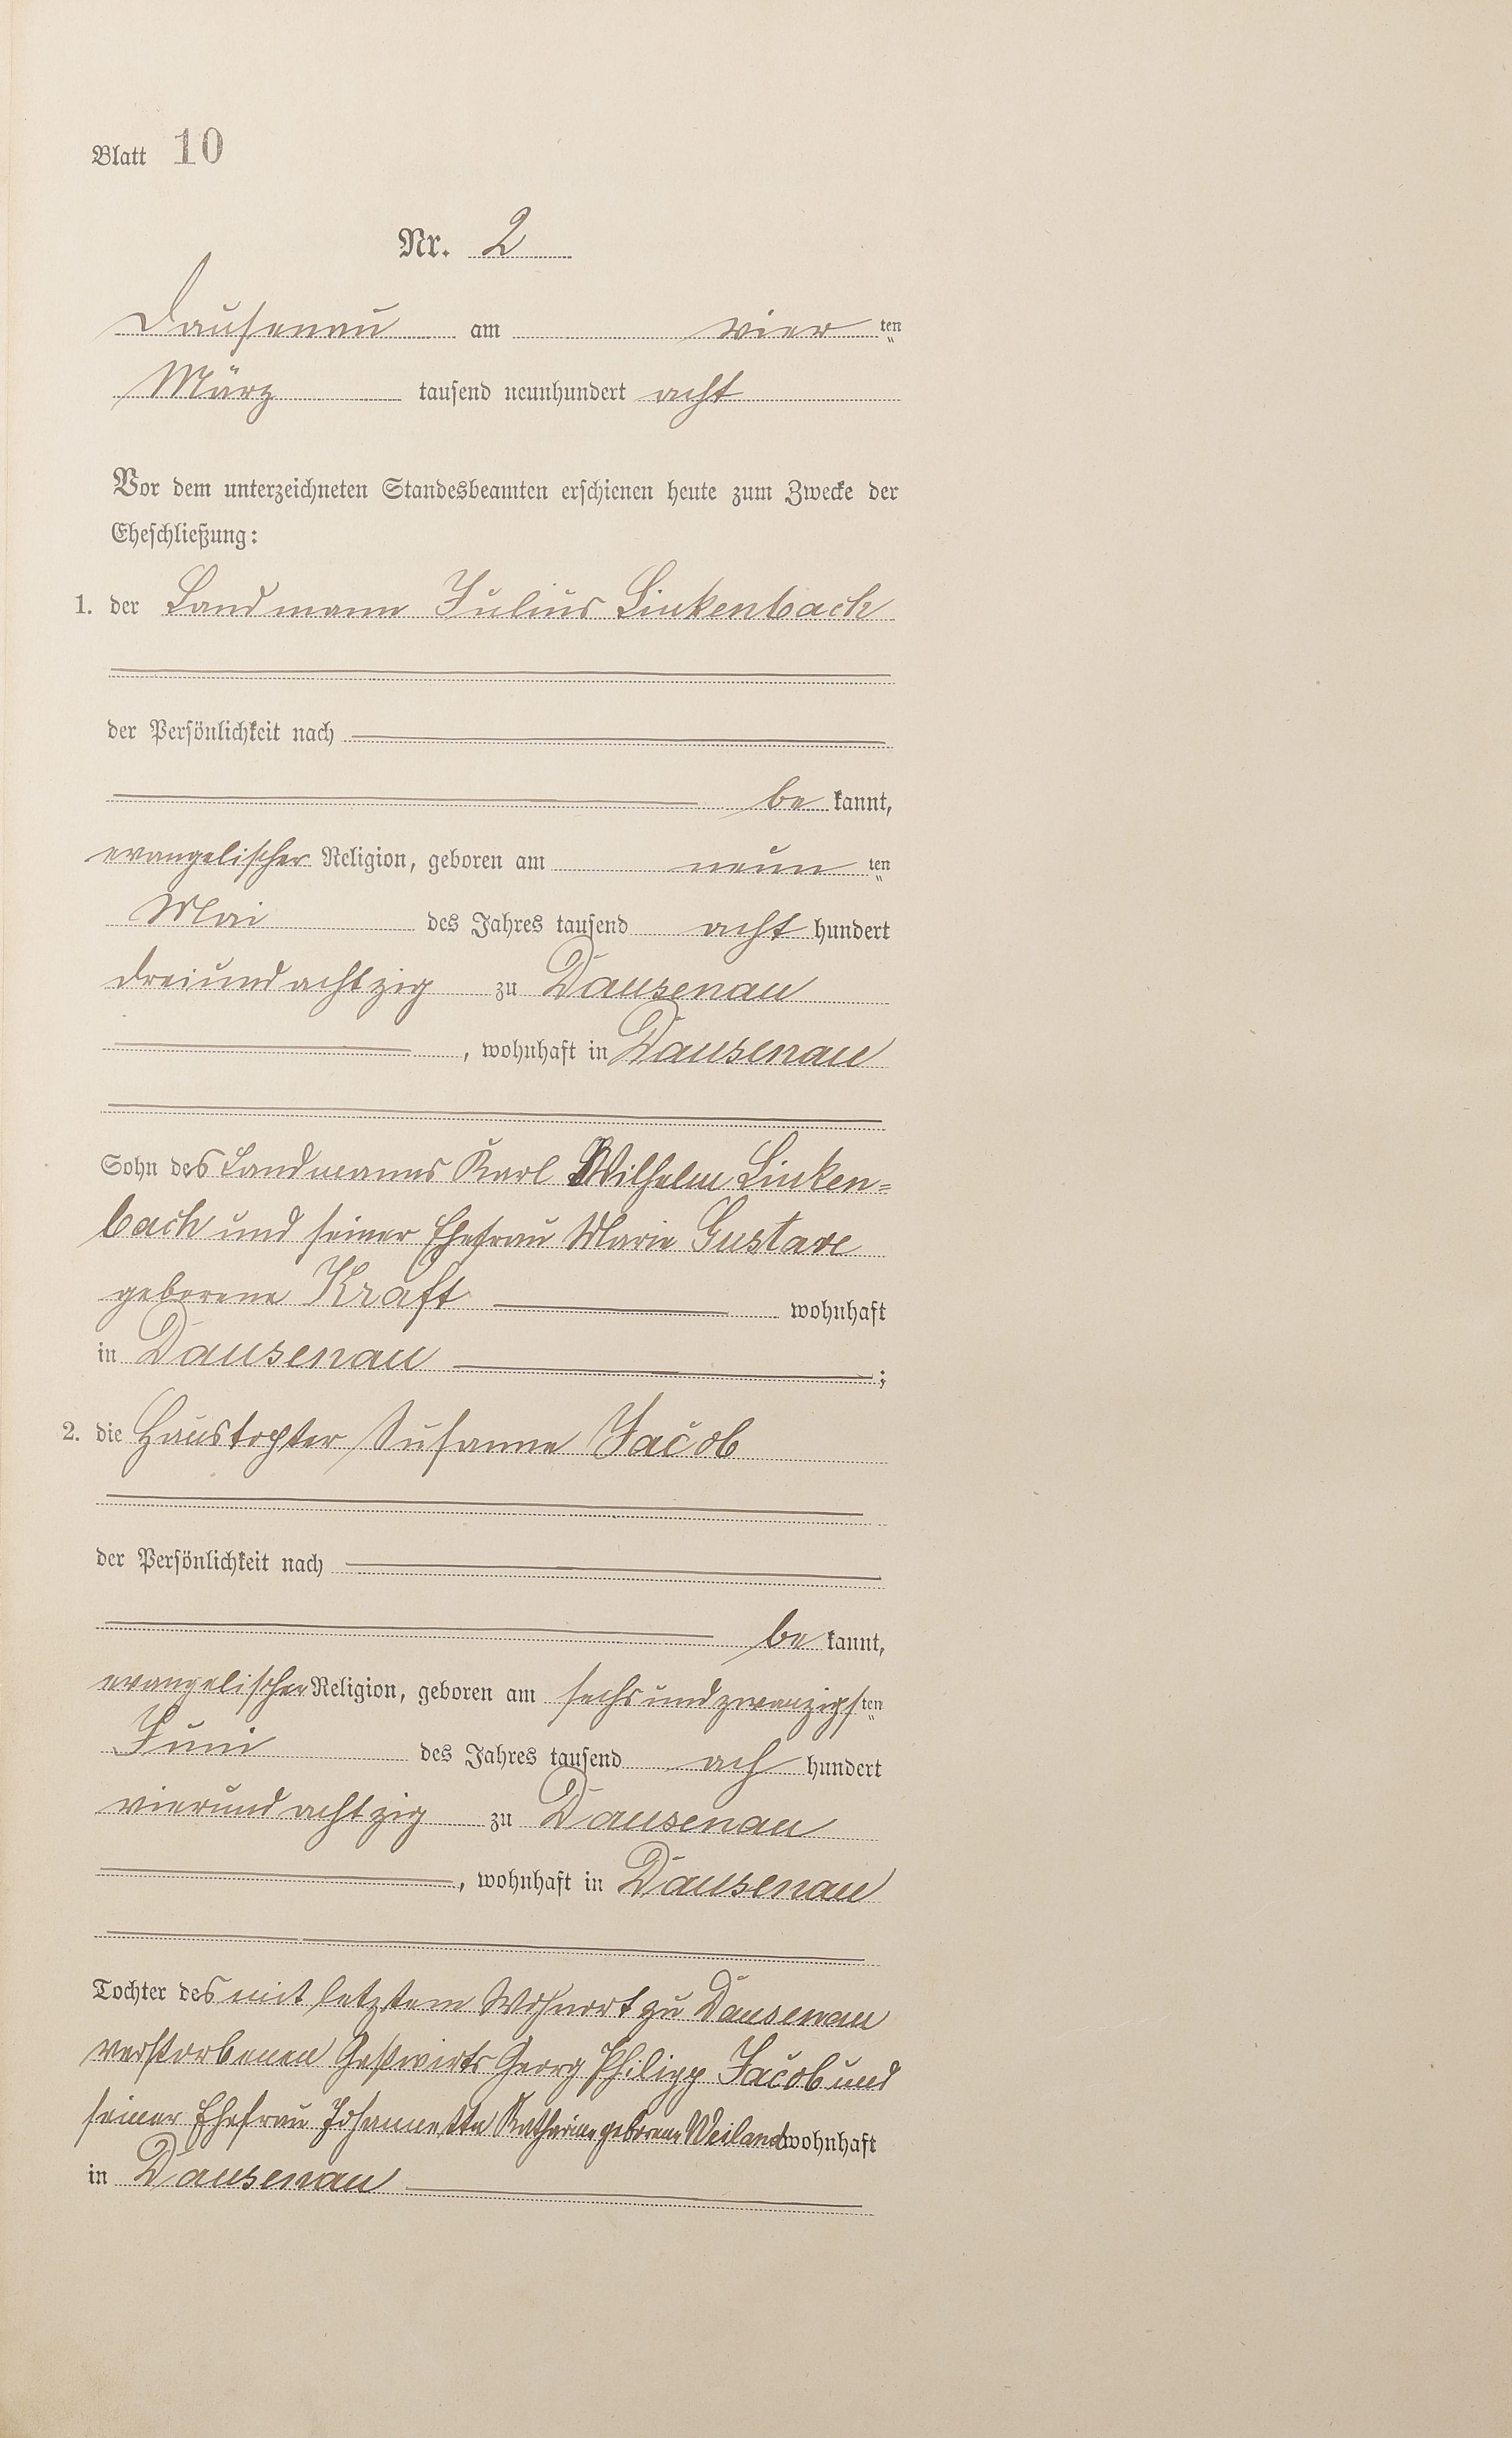 Blatt 10
Nr. 2
Dausenau am vier ten
März tausend neunhundert acht
Vor dem unterzeichneten Standesbeamten erschienen heute zum Zwecke der
Eheschließung:
1. der Landmann Julius Linkenbach
der Persönlichkeit nach
be kannt,
evangelischer Religion, geboren am neun ten
Mai des Jahres tausend acht hundert
dreiundachtzig zu Dausenau
, wohnhaft in Dausenau
Sohn des Landmanns Karl Wilhelm Linken=
bach und seiner Ehefrau Marie Gustave
geborene Kraft wohnhaft
in Dausenau ;
2. die Haustochter Susanne Jacob
der Persönlichkeit nach
be kannt,
evangelischer Religion, geboren am sechsundzwanzigsten
Juni des Jahres tausend ach hundert
vierundachtzig zu Dausenau
, wohnhaft in Dausenau
Tochter des mit letztem Wohnort zu Dausenau
verstorbenen Gastwirts Georg Philipp Jacob und
seiner Ehefrau Johannette Katharine geborene Weiland wohnhaft
in Dausenau